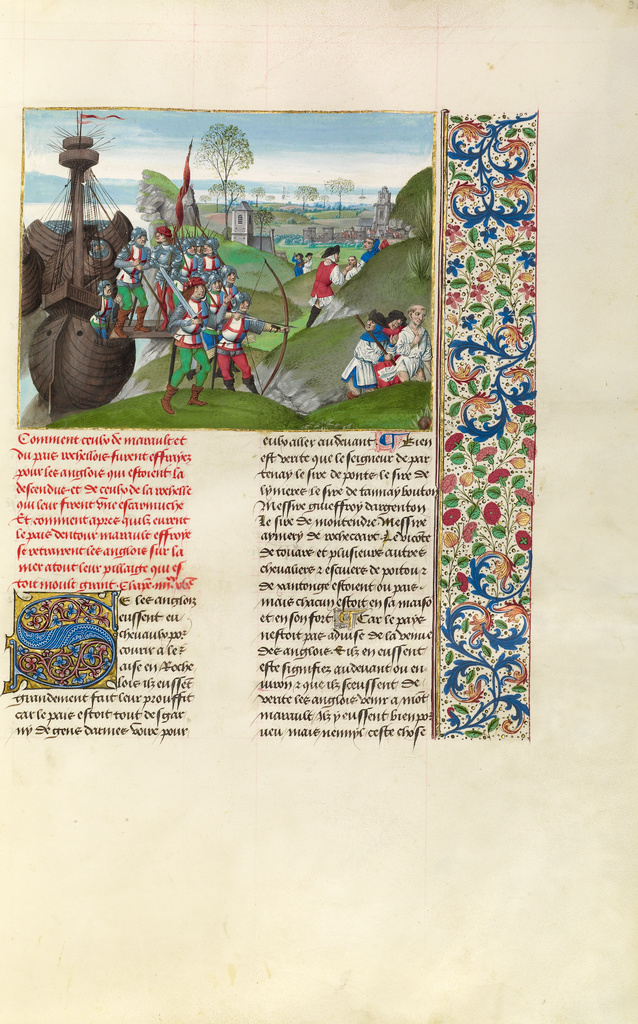 Comment ceulx de marault et
du pais rochellois furent effraiez
pour les anglois qui estoient la
descendus et de ceulx de la rochelle
qui leur firent une escarmuche
Et comment apres quilz eurent
le pais dentour marault effroye
se retrairent les anglois sur la
mer atout leur pillage qui es
toit moult grant
Se les anglois
eussent eu
chevaulx por
courir a le
aise en Roche
lois ilz eussent
grandement fait leur prouffit
car le pais estoit tout desgar
ny de gens darmes voire pour
eulx aller audevant Bien
est verite que le seigneur de par
tenay le sire de ponts le sire de
lymieres le sire de tannay bouton
Messire guieffroy dargenton
le sire de montendre Messire
aymery de rochecoart le viconte
de touars et plusieurs autres
chevaliers et escuiers de poitou et
de xantonge estoient ou pais
mais chacun estoit en sa maison
et en son fort Car le pays
nestoit pas advise de la venue
des anglois Et silz en eussent
este signifiez audevant ou en
uiron et que ilz sceussent de
verite les anglois venir a
marault Ilz y eussent bien por
veu mais nennil ceste chose